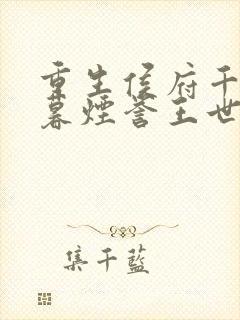 重生侯府千
暮煙誉王世
集千藍